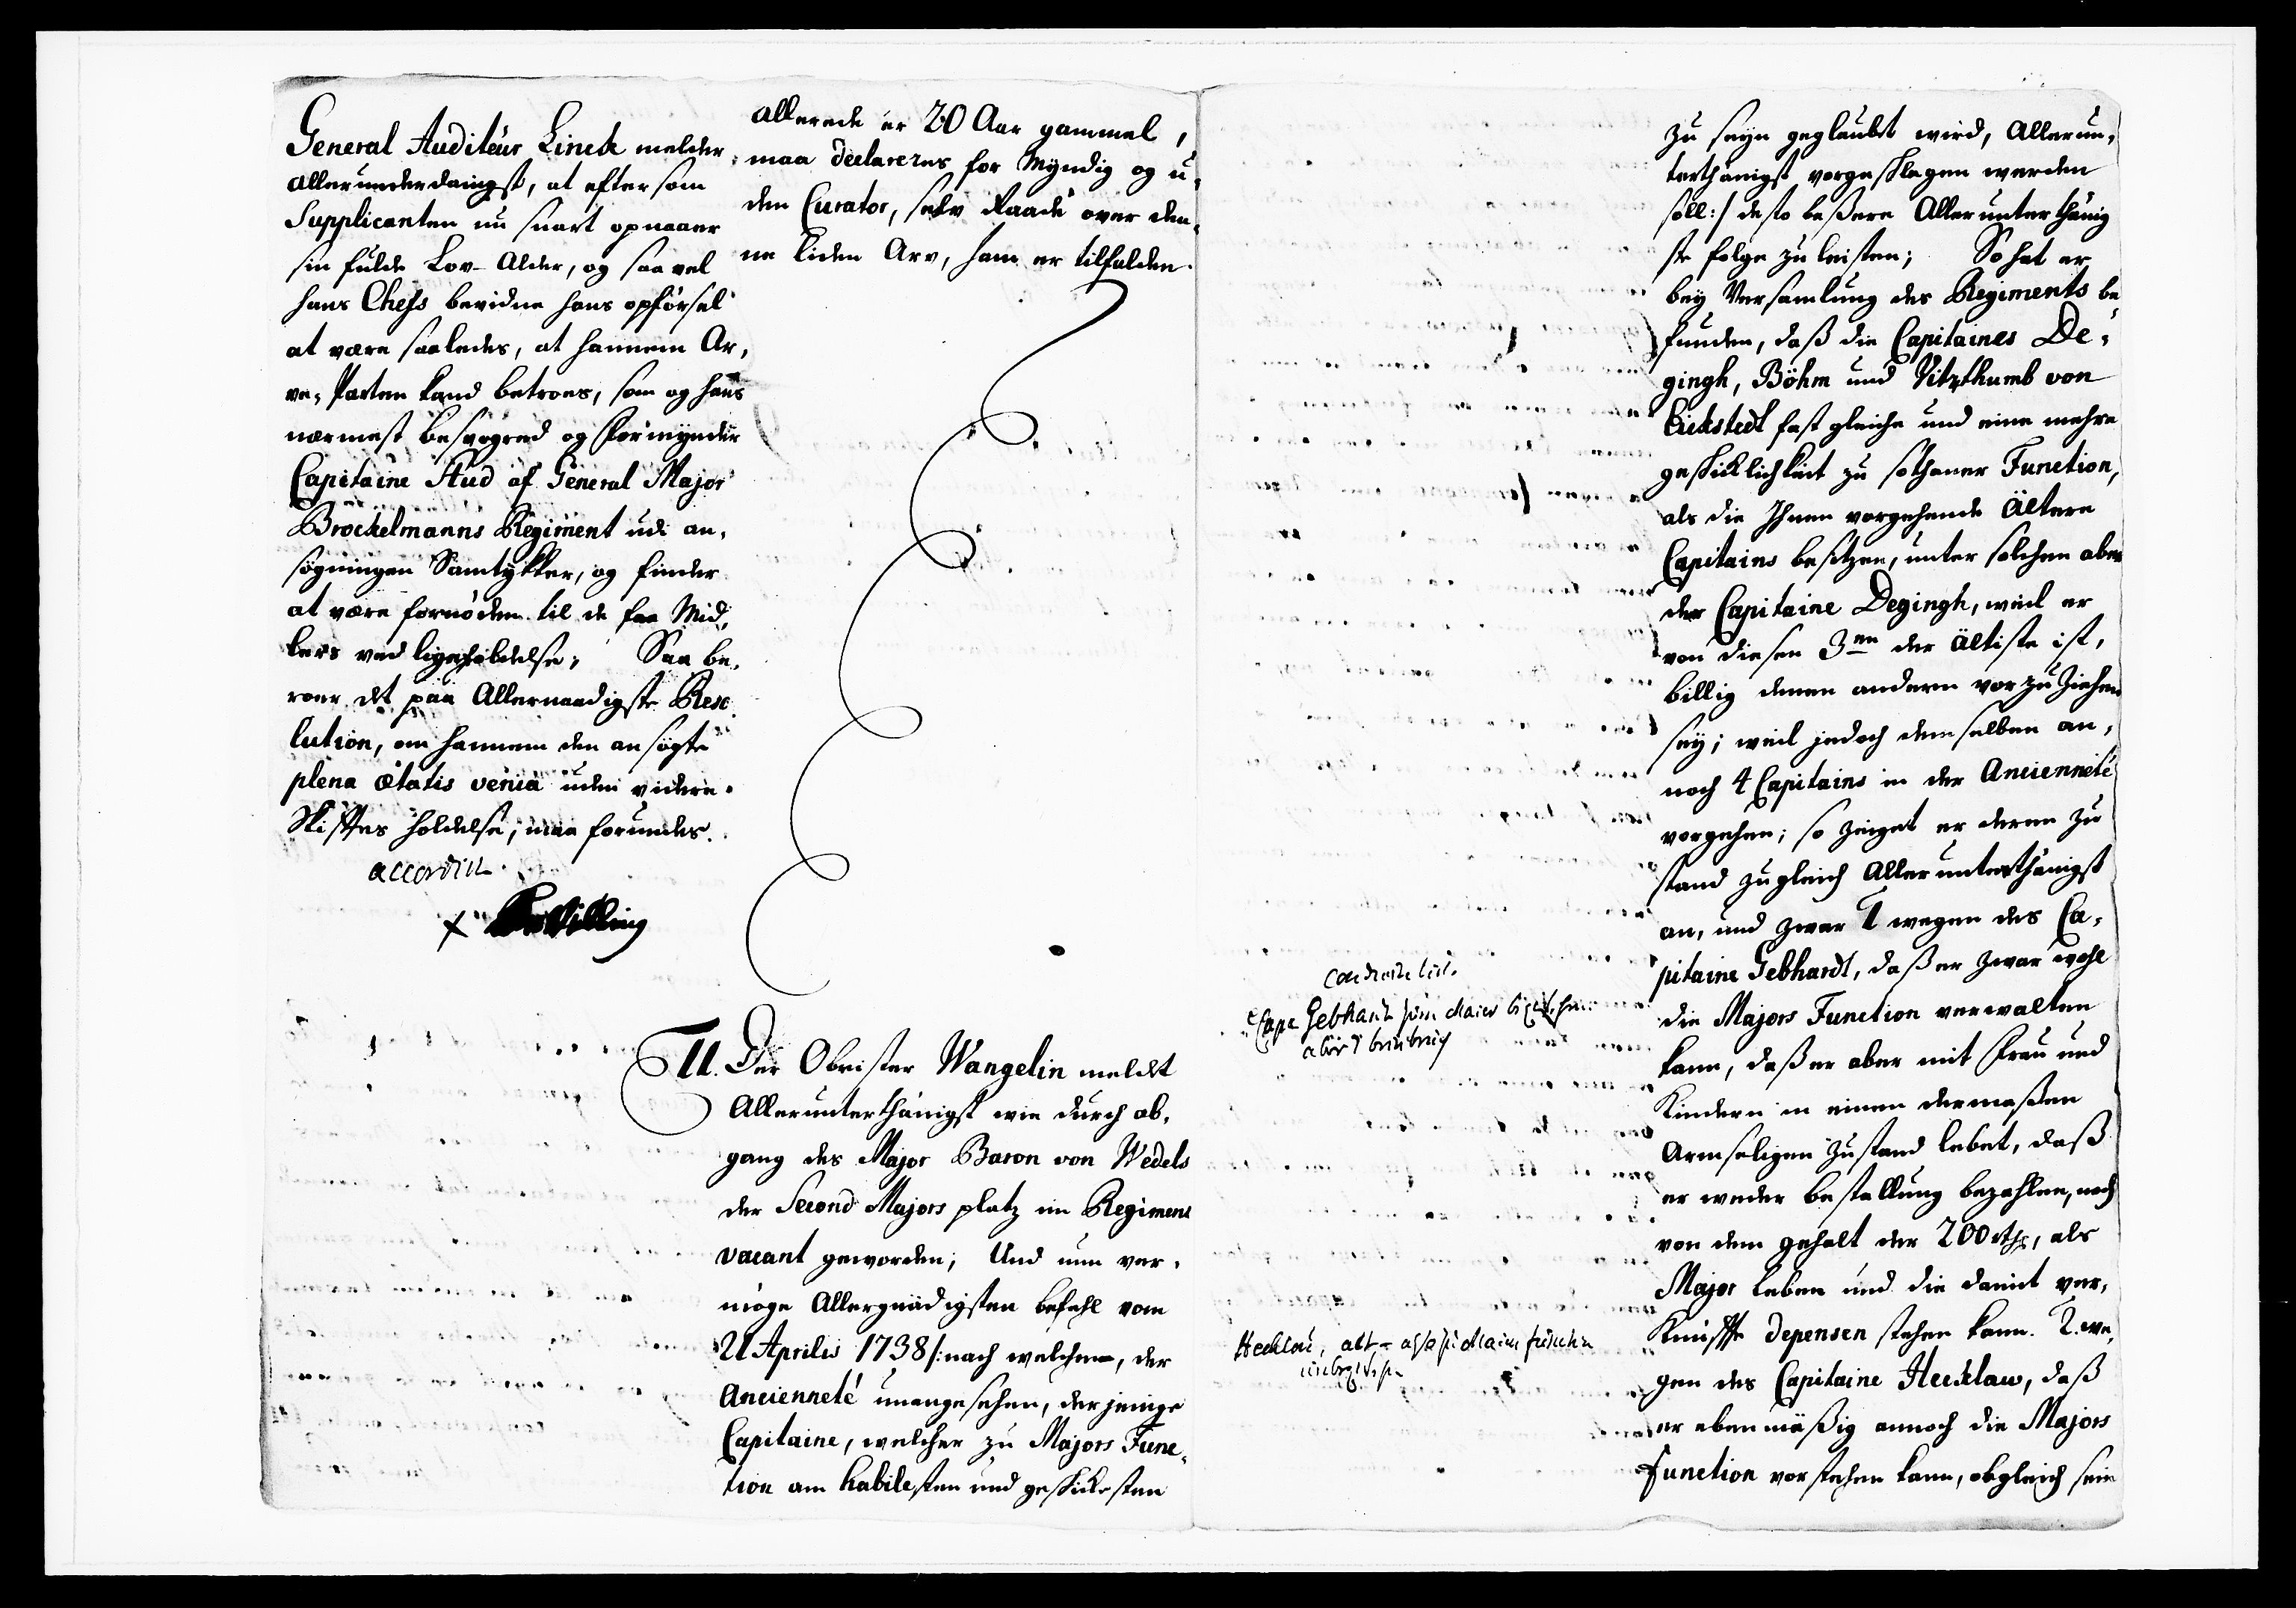 General Auditeur Linck melder
allerunderdanigst, at eftersom
Supplicanten nu snart opnaaer
sin fulde Lov-Alder, og saavel
hans Chefs bevidne hans opførsel
at være saaledes, at hannem Ar,
ve-Parten kand betroes, som og hans
nærmest besvogred og Formynder
Capitaine Hud af General Major
Brockelmanns Regiment udi an,
søgningen Samtykker, og finder
at være fornøden til de faa Mid,
lers ved ligeholdelse; Saa be,
roer det paa Allernaadigste Reso
lution, om hannem den ansøgte
plena ætatis venia uden videre
Skiftes holdelse, maa forundes.
accordirt
x Bevilling
allerede er 20 Aar gammel,
maa declareres for Myndig og u,
den Curator, selv Raade over den,
ne liden Arv, ham er tilfalden.
11. Der Obrister Wangelin meldt
Allerunterthänigst wie durch ab,
gang des Major Baron von Wedels
der Second Majors platz im Regiment
vacant geworden; Und nun ver,
möge Allergnädigsten befehl vom
21 Aprilis 1738 /: nach welchem, der
Ancienneté unangesehen, derjenige
Capitaine, welcher zu Majors Func,
tion am habilesten und geschicktesten
zu seyn geglaubt wird, Allerun,
terthänigst vorgeschlagen werden
soll :/ desto beßere Allerunterthänig
ste folge zu leisten; So hat er
bey Versamlung des Regiments be
funden, daß die Capitaines De,
gingh, Böhm und Vitzthumb von
Eickstedt fast gleiche und eine mehre
geschicklichkeit zu sothaner Function,
als die Ihnen vorgehende Ältere
Capitains besitzen, unter solchen aber
der Capitaine Degingh, weil er
von diesen 3en der Älteste ist,
billig denen andern vorzuziehen
sey; weil jedoch demselben an,
noch 4 Capitains in der Ancienneté
vorgehen; so zeiget er deren Zu
stand zugleich Allerunterthänigst
an, und zwar 1 wegen des Ca,
pitaine Gebhardt, daß er zwar wohl
die Majors Function verwalten
kann, daß er aber mit Frau und
Kindern in einem dermaßen
Armseligen Zustand lebet, daß
er weder bestallung bezahlen, noch
von dem gehalt der 200 Rthr, als
Major leben und die damit ver,
Knüpffte depensen stehen kann. 2. we,
gen des Capitaine Hecklaw, daß
er ebenmäßig annoch die Majors
Function vorstehen kann, obgleich sein
Capt Gebhardt zum Maior
Hecklau, alt